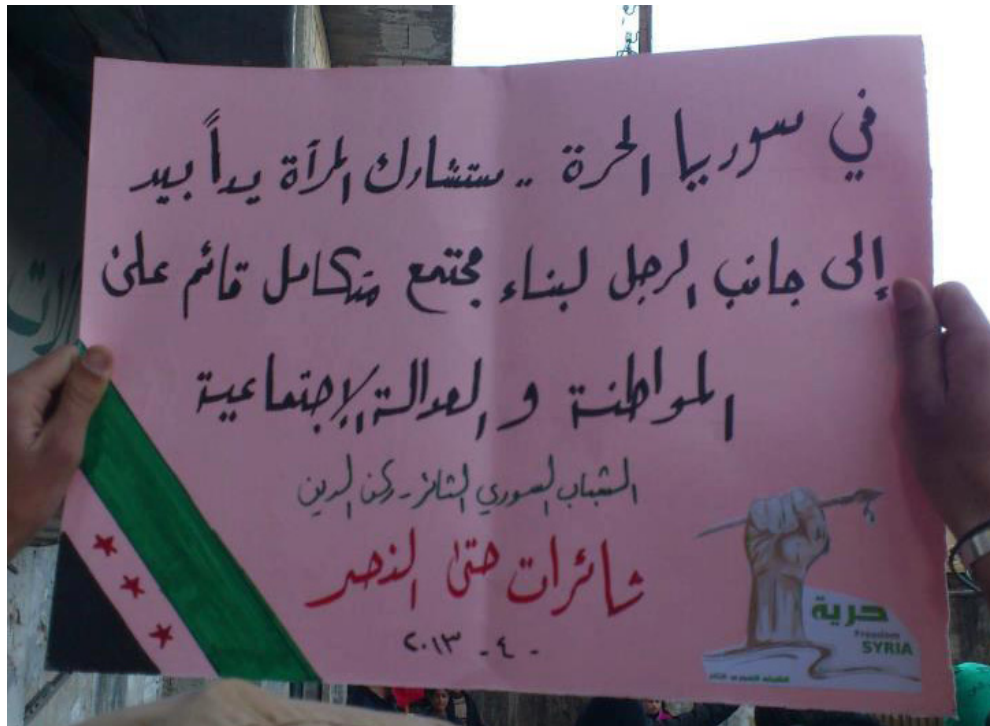 في سوريا الحرة .. ستشارك المرأة يداً بيد
إلى جانب الرجل لبناء مجتمع متكامل قائم على
المواطنة و العدالة الإجتماعية
الشباب السوري الثائر - ركن الدين
ثائرات حتى النصر
- ٤ - ٢٠١٣
حرية
Freedom
SYRIA
الشباب السوري الثائر